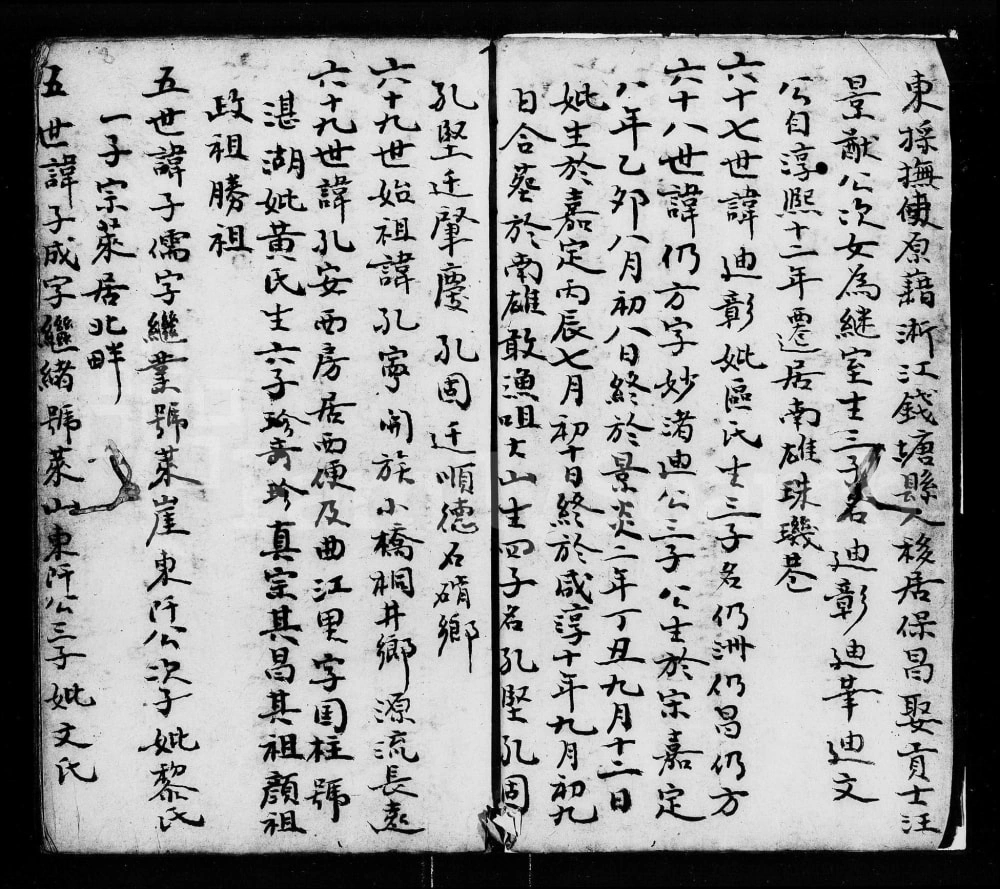 東採撫使原籍淅江錢塘縣人移居保昌娶貢士汪
景猷公次女為継室生三子名廸彰廸莑廸文
公自淳熙十二年遷居南雄珠璣巷
六十七世諱廸彰妣區氏生三子名仍洲仍昌仍方
六十八世諱仍方字妙渚廸公三子公生於宋嘉定
八年乙夘八月初八日終於景炎二年丁丑九月十二日
妣生於嘉定丙辰七月初十日終於咸淳十年九月初九
日合塟於南雄敢漁咀大山生四子名孔堅孔固
孔堅迁肇慶孔固迁順德石硝鄉
六十九世始祖諱孔寧開族小橋桐井鄉源流長遠
六十九世諱孔安西房居西便及曲江里字国柱號
湛湖妣黄氏生六子珍竒珍真宗其昌其祖顔祖
政祖勝祖
五世諱子儒字繼業號萊崖東阡公次子妣黎氏
一子宗萊居北畔
五世諱子成字繼緒號萊山東阡公三子妣文氏